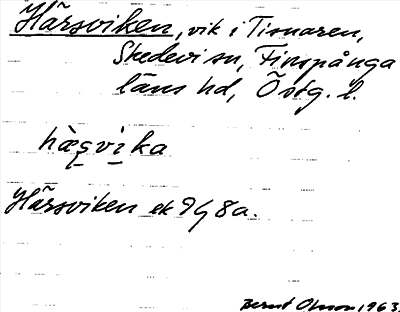 Härsviken, vik i Tisnaren,
Skedevi sn, Finspånga
läns hd, Östg. l.
hæ̀şvi̱ka
Härsviken ek 9G 8a.
Bernt Olsson, 1963.